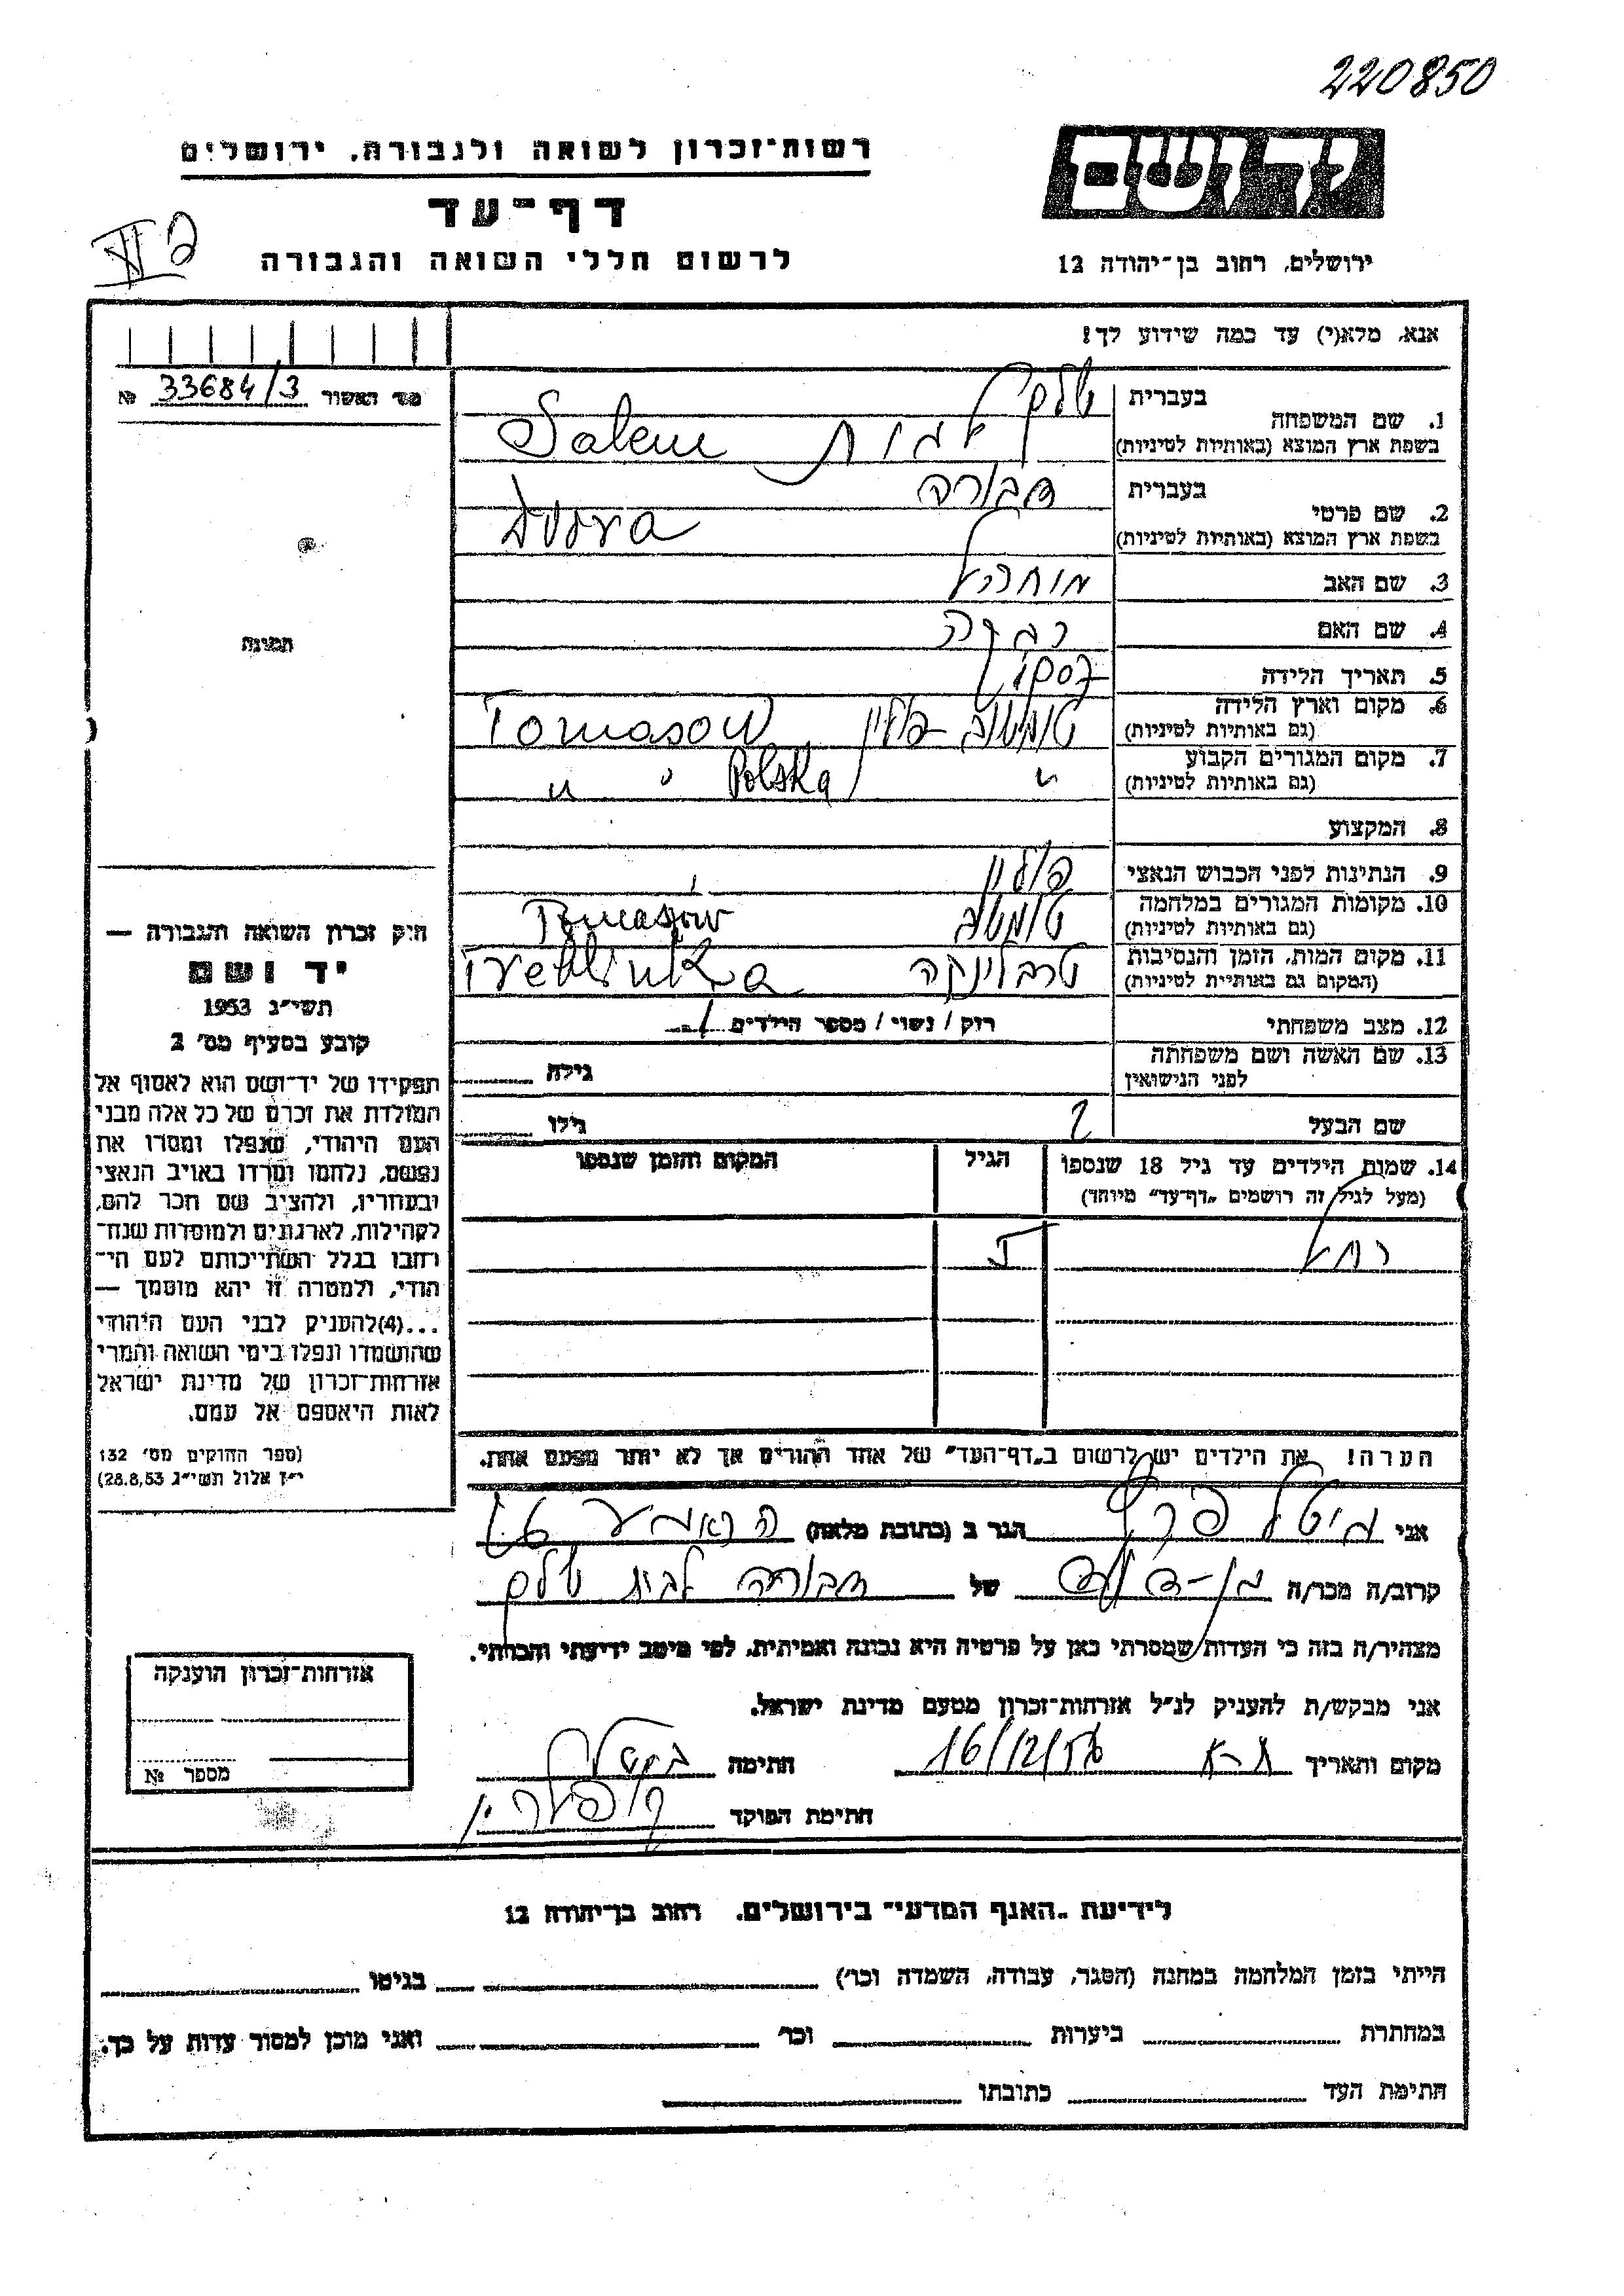 220850
רשות־זכרון לשואה ולגבורה, ירושלים
ידושם
דף־עד
לרשום חללי השואה והגבורה
ירושלים, רחוב בן־יהודה 12
אנא, מלא(י) עד כמה שידוע לך!
מס׳ האשור 33684/3 №
1. שם המשפחה
בעברית
בשפת ארץ המוצא (באותיות לטיניות)
Salem לבית
2. שם פרטי
בעברית דבורה
בשפת ארץ המוצא (באותיות לטיניות)
3. שם האב
4. שם האם
תמונה
5. תאריך הלידה
6. מקום וארץ הלידה
(גם באותיות לטיניות) פולין Tomasow
7. מקום המגורים הקבוע
(גם באותיות לטיניות) " Polska " "
8. המקצוע
9. הנתינות לפני הכבוש הנאצי פולין
10. מקומות המגורים במלחמה
(גם באותיות לטיניות) Tomasów
11. מקום המות, הזמן והנסיבות
(המקום גם באותיית לטיניות) טרבלינקה Treblinka
12. מצב משפחתי רוק / נשוי / מספר הילדים 1
13. שם האשה ושם משפחתה
לפני הנישואין גילה
שם הבעל גילו
14. שמות הילדים עד גיל 18 שנספו
(מעל לגיל זה רושמים „דף־עד״ מיוחד)
הגיל
המקום והזמן שנספו
רחל
חוק זכרון השואה והגבורה —
יד ושם
תשי״ג 1953
קובע בסעיף מס׳ 2
תפקידו של יד־ושם הוא לאסוף אל
המולדת את זכרם של כל אלה מבני
העם היהודי, שנפלו ומסרו את
נפשם, נלחמו ומרדו באויב הנאצי
ובעוזריו, ולהציב שם וזכר להם,
לקהילות, לארגונים ולמוסדות שנח־
רבו בגלל השתייכותם לעם הי־
הודי, ולמטרה זו יהא מוסמך —
...(4)להעניק לבני העם היהודי
שהושמדו ונפלו בימי השואה והמרי
אזרחות־זכרון של מדינת ישראל
לאות היאספם אל עמם.
(ספר החוקים מס׳ 132
י״ז אלול תשי״ג 28.8.53)
הערה! את הילדים יש לרשום ב„דף־העד״ של אחד ההורים אך לא יותר מפעם אחת.
אני הגר ב (כתובת מלאה)
קרוב/ה מכר/ה בן־דוד של דבורה לבית
מצהיר/ה בזה כי העדות שמסרתי כאן על פרטיה היא נכונה ואמיתית, לפי מיטב ידיעתי והכרתי.
אני מבקש/ת להעניק לנ״ל אזרחות־זכרון מטעם מדינת ישראל.
מקום ותאריך ת־א 16/12/56 חתימה
חתימת הפוקד
אזרחות־זכרון הוענקה
מספר №
לידיעת „האגף המדעי״ בירושלים, רחוב בן־יהודה 12
הייתי בזמן המלחמה במחנה (הסגר, עבודה, השמדה וכו׳) בגיטו
במחתרת ביערות וכו׳ ואני מוכן למסור עדות על כך.
חתימת העד כתובתו